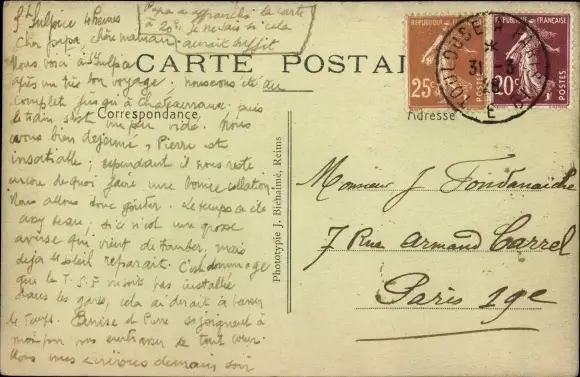 St Sulpice 16 heures
Papa a affranchi la carte
à 20c. je ne sais si cela
aurait suffit
Cher papa, chère maman
Nous voici à St Sulpice
après un très bon voyage, nous avons été au
complet jusqu'à Chateauroux puis
le train s'est un peu vidé. Nous
avons bien déjeuné, Pierre est
insatiable; cependant il nous reste
encore de quoi faire une bonne collation
Nous allons donc goûter. Le temps a été
assez beau, si ce n'est une grosse
averse qui vient de tomber, mais
déjà le soleil reparait. C'est dommage
que la T.S.F. ne soit pas installée
dans les gares, cela aiderait à passer
le temps. Denise et Pierre se joignent à
moi pour vous embrasser de tout cœur.
Nous vous écrirons demain soir
CARTE POSTALE
Correspondance
Adresse
REPUBLIQUE FRANÇAISE
25c
POSTES
FRANÇAISE
20c
POSTES
TOULOUSE A
31 -3
E
Phototypie J. Bichaimé, Reims
Monsieur J Fontanaiche
7 Rue Armand Carrel
Paris 19e